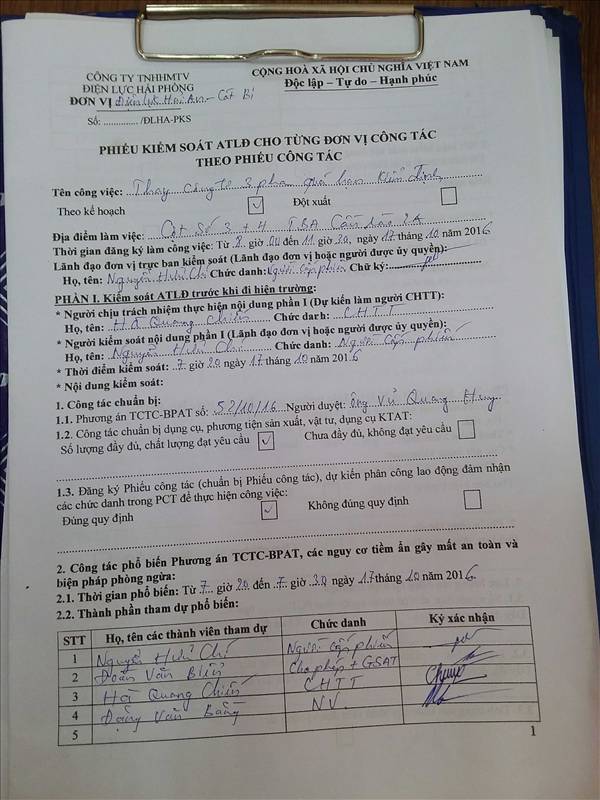 CÔNG TY TNHHMTV
ĐIỆN LỰC HẢI PHÒNG
ĐƠN VỊ Điện lực Hải An - Cát Bi
Số: ............. /ĐLHA-PKS
CỘNG HOÀ XÃ HỘI CHỦ NGHĨA VIỆT NAM
Độc lập – Tự do – Hạnh phúc
PHIẾU KIỂM SOÁT ATLĐ CHO TỪNG ĐƠN VỊ CÔNG TÁC
THEO PHIẾU CÔNG TÁC
Tên công việc: Thay công tơ 3 pha quá hạn kiểm định
Theo kế hoạch ✓ Đột xuất
Địa điểm làm việc: Cột Số 3 + 4 TBA 2A
Thời gian đăng ký làm công việc: Từ 8 giờ 00 đến 11 giờ 30, ngày 17 tháng 10 năm 2016
Lãnh đạo đơn vị trực ban kiểm soát (Lãnh đạo đơn vị hoặc người được ủy quyền):
Họ, tên: Nguyễn Hữu Chí Chức danh: Người cấp phiếu Chữ ký:
PHẦN I. Kiểm soát ATLĐ trước khi đi hiện trường:
* Người chịu trách nhiệm thực hiện nội dung phần I (Dự kiến làm người CHTT):
Họ, tên: Hà Quang Chiến Chức danh: CHTT
* Người kiểm soát nội dung phần I (Lãnh đạo đơn vị hoặc người được ủy quyền):
Họ, tên: Nguyễn Hữu Chí Chức danh: Người cấp phiếu
* Thời điểm kiểm soát: 7 giờ 20 ngày 17 tháng 10 năm 2016
* Nội dung kiểm soát:
1. Công tác chuẩn bị:
1.1. Phương án TCTC-BPAT số: 52/10/16 Người duyệt: ông Vũ Quang Hưng
1.2. Công tác chuẩn bị dụng cụ, phương tiện sản xuất, vật tư, dụng cụ KTAT:
Số lượng đầy đủ, chất lượng đạt yêu cầu ✓ Chưa đầy đủ, không đạt yêu cầu
1.3. Đăng ký Phiếu công tác (chuẩn bị Phiếu công tác), dự kiến phân công lao động đảm nhận
các chức danh trong PCT để thực hiện công việc:
Đúng quy định ✓ Không đúng quy định
2. Công tác phổ biến Phương án TCTC-BPAT, các nguy cơ tiềm ẩn gây mất an toàn và
biện pháp phòng ngừa:
2.1. Thời gian phổ biến: Từ 7 giờ 20 đến 7 giờ 30 ngày 17 tháng 10 năm 2016
2.2. Thành phần tham dự phổ biến:
STT Họ, tên các thành viên tham dự Chức danh Ký xác nhận
1 Nguyễn Hữu Chí Người cấp phiếu
2 Đoàn Văn Biển Cho phép + GSAT
3 Hà Quang Chiến CHTT
4 Đồng Văn Bằng NV.
5
1